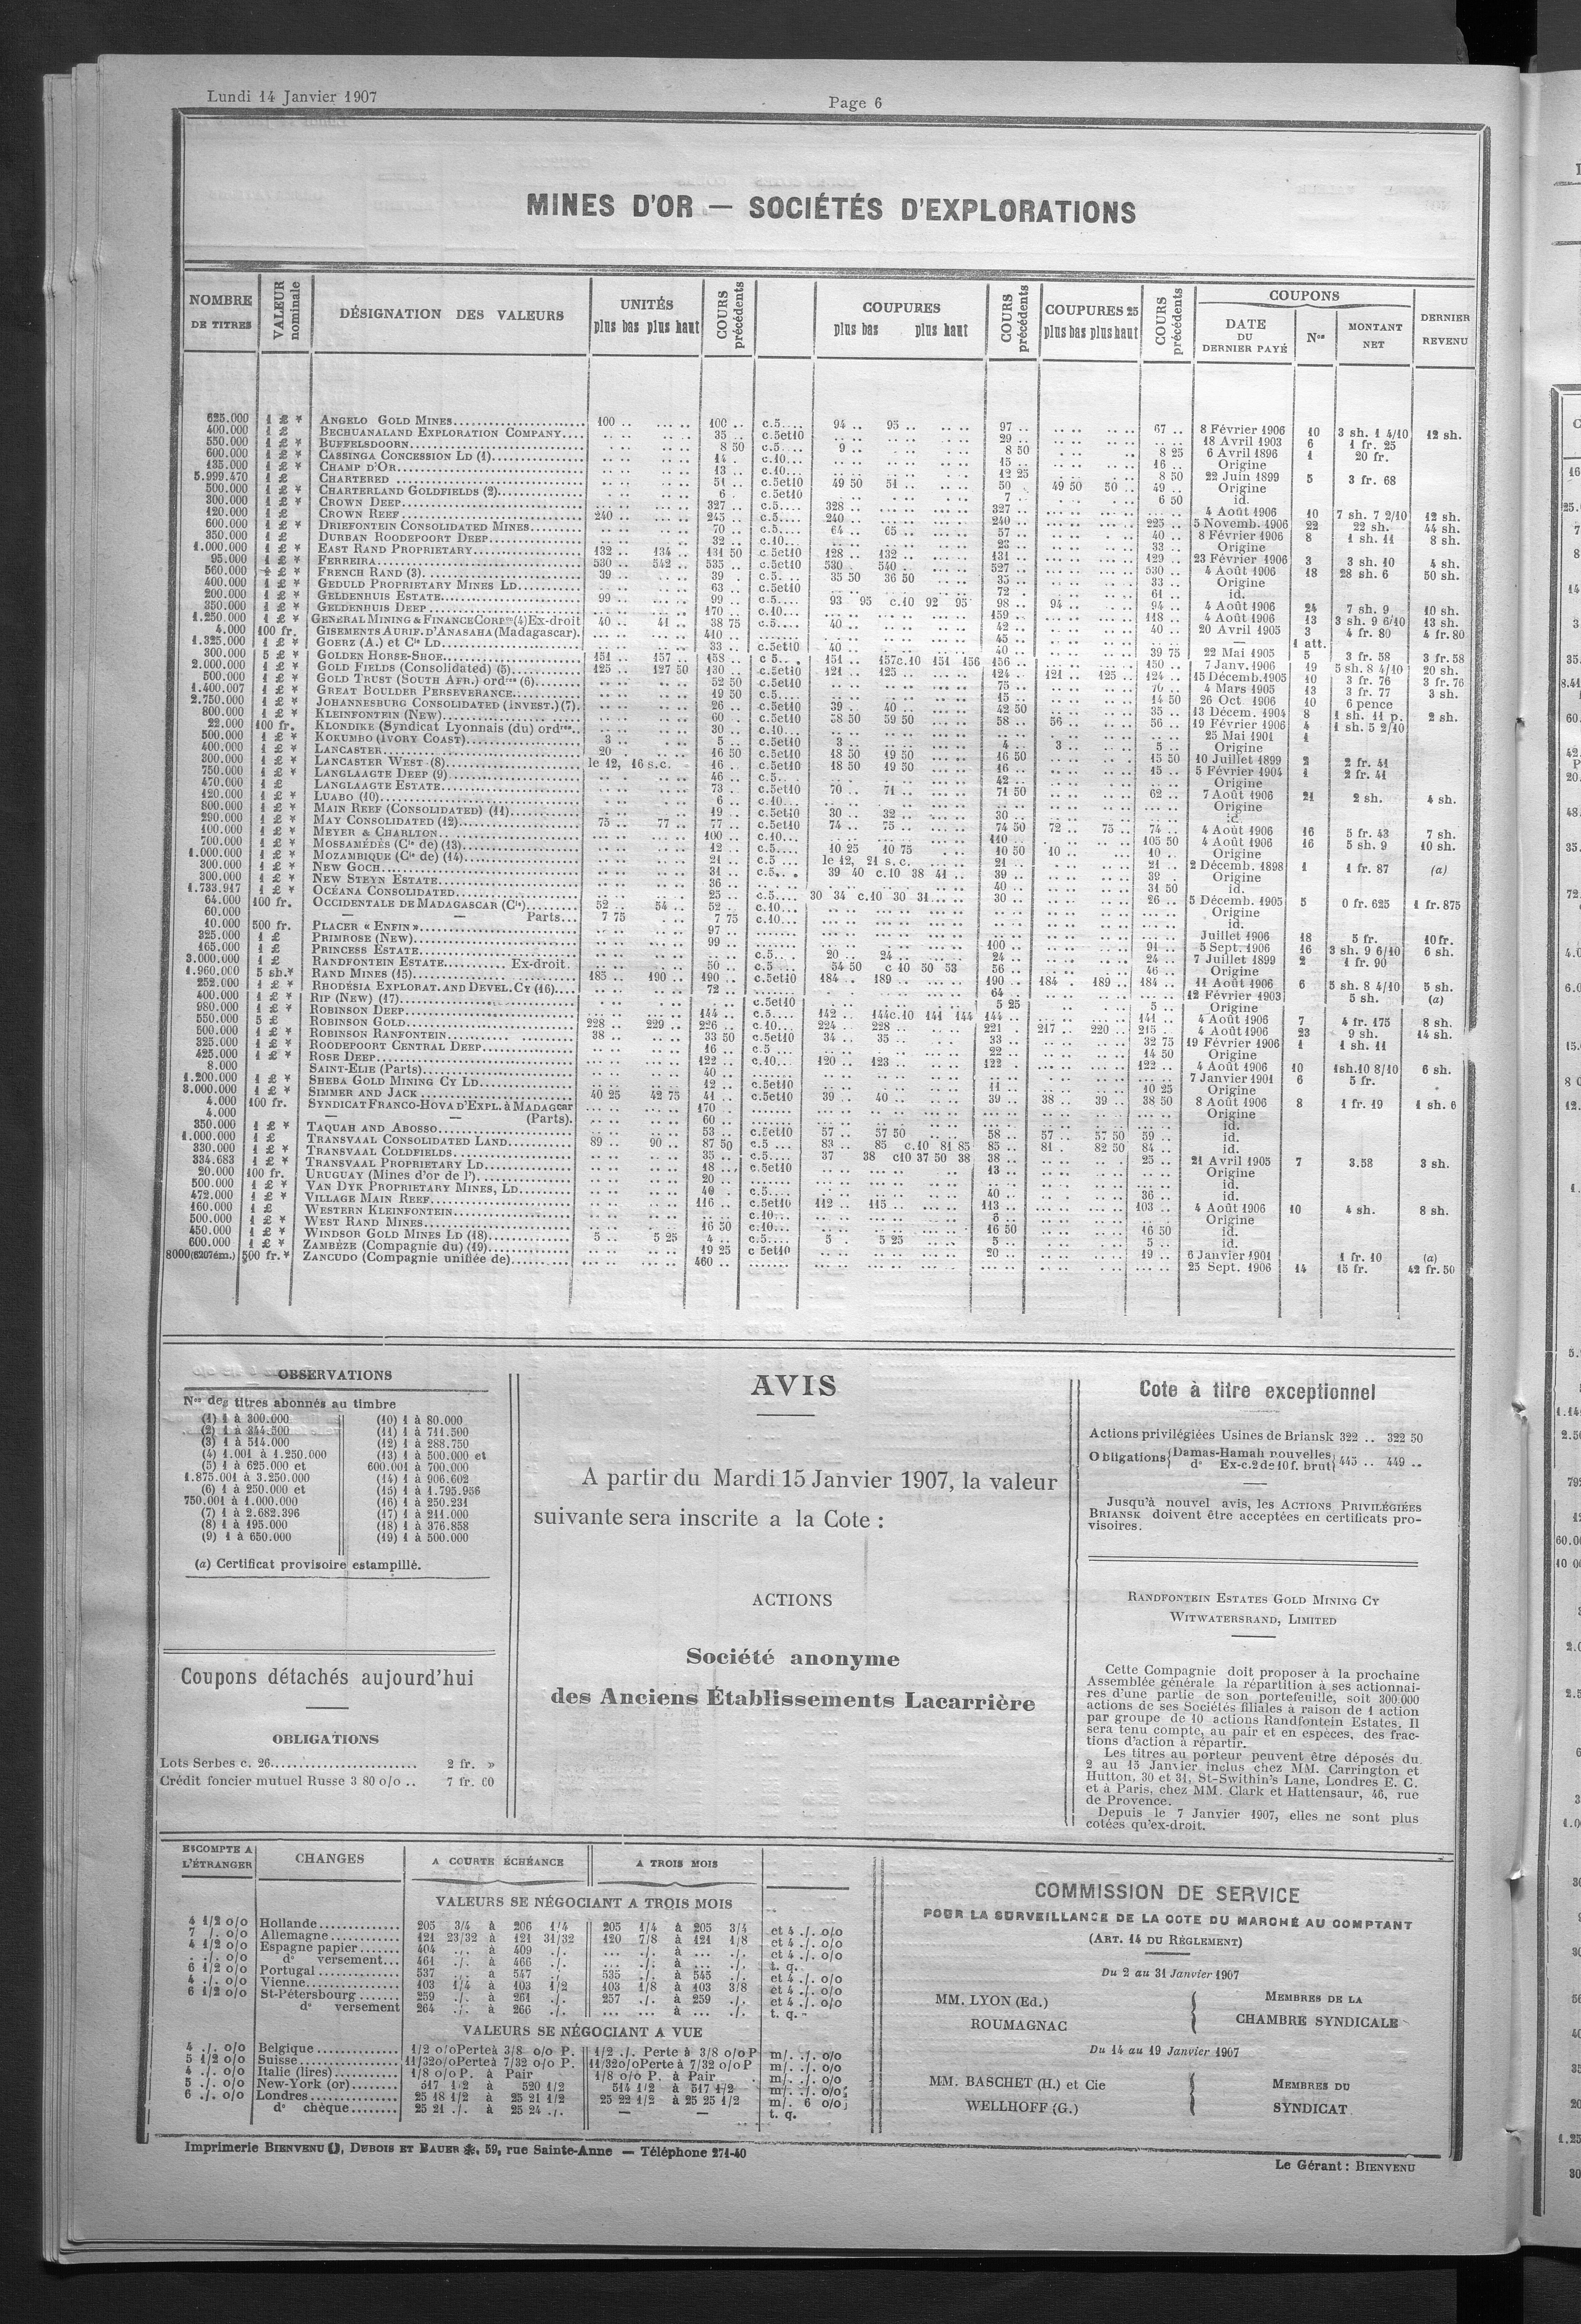 Lundi 14 Janvier 1907
Page 6
MINES D'OR — SOCIÉTÉS D'EXPLORATIONS
NOMBRE DE TITRES
VALEUR nominale
DÉSIGNATION DES VALEURS
UNITÉS
plus bas plus haut
COURS précédents
COUPURES
plus bas plus haut
COURS précédents
COUPURES 25
plus bas plus haut
COURS précédents
COUPONS
DATE DU DERNIER PAYÉ
Nos
MONTANT NET
DERNIER REVENU
625.000 1 £ * ANGELO GOLD MINES 100 .. 100 .. c.5 94 .. 95 .. 97 .. 67 .. 8 Février 1906 10 3 sh. 1 4/10 12 sh.
400.000 1 £ BECHUANALAND EXPLORATION COMPANY 35 .. c.5et10 29 .. 18 Avril 1903 6 1 fr. 25
550.000 1 £ * BUFFELSDOORN 8 50 c.5 9 .. 8 50 8 25 6 Avril 1896 1 20 fr.
600.000 1 £ * CASSINGA CONCESSION LD (1) 14 . c.10 15 .. 16 .. Origine
135.000 1 £ * CHAMP D'OR 13 .. c.10 12 25 8 50 22 Juin 1899 5 3 fr. 68
5.999.470 1 £ CHARTERED 51 .. c.5et10 49 50 51 .. 50 .. 49 50 50 .. 49 .. Origine
500.000 1 £ * CHARTERLAND GOLDFIELDS (2) 6 . c.5et10 7 .. 6 50 id.
300.000 1 £ * CROWN DEEP 327 .. c.5 328 .. 327 .. 4 Août 1906 10 7 sh. 7 2/10 12 sh.
120.000 1 £ CROWN REEF 240 .. 245 .. c.5 240 .. 240 .. 225 .. 5 Novemb. 1906 22 22 sh. 44 sh.
600.000 1 £ * DRIEFONTEIN CONSOLIDATED MINES 70 .. c.5 64 .. 65 .. 57 .. 40 .. 8 Février 1906 8 1 sh. 11 8 sh.
350.000 1 £ DURBAN ROODEPOORT DEEP 32 .. c.10 23 .. 33 .. Origine
1.000.000 1 £ * EAST RAND PROPRIETARY 132 .. 134 .. 131 50 c.5et10 128 .. 132 .. 131 .. 129 .. 23 Février 1906 3 3 sh. 10 4 sh.
95.000 1 £ * FERREIRA 530 .. 542 .. 535 .. c.5et10 530 . 540 .. 527 .. 530 .. 4 Août 1906 18 28 sh. 6 50 sh.
560.000 1 £ * FRENCH RAND (3) 39 .. 39 .. c.5 35 50 36 50 35 .. 33 .. Origine
400.000 1 £ * GEDULD PROPRIETARY MINES LD 63 .. c.5et10 72 . 61 .. id.
200.000 1 £ * GELDENHUIS ESTATE 99 .. 99 .. c.5 93 95 c.10 92 95 98 .. 94 .. 94 .. 4 Août 1906 24 7 sh. 9 10 sh.
350.000 1 £ * GELDENHUIS DEEP 170 .. c.10 159 .. 118 .. 4 Août 1906 13 3 sh. 9 6/10 13 sh.
1.250.000 1 £ * GENERAL MINING & FINANCE CORPon (4) Ex-droit 40 .. 41 .. 38 75 c.5 40 .. 42 .. 40 .. 20 Avril 1905 3 4 fr. 80 4 fr. 80
4.000 100 fr. GISEMENTS AURIF. D'ANASAHA (Madagascar). 410 .. 45 .. — 1 att.
1.325.000 1 £ * GOERZ (A.) et Cie LD 33 .. c.5et10 40 .. 40 .. 39 75 22 Mai 1905 5 3 fr. 58 3 fr. 58
300.000 5 £ * GOLDEN HORSE-SHOE 151 .. 157 .. 158 .. c 5 151 .. 157c.10 151 156 156 .. 150 .. 7 Janv. 1906 19 5 sh. 8 4/10 20 sh.
2.000.000 1 £ * GOLD FIELDS (Consolidated) (5) 125 .. 127 50 130 .. c.5et10 121 .. 125 .. 124 .. 121 .. 125 .. 124 .. 15 Décemb. 1905 10 3 fr. 76 3 fr. 76
500.000 1 £ * GOLD TRUST (SOUTH AFR.) ordres (6) 52 50 c.5et10 75 .. 70 .. 4 Mars 1905 13 3 fr. 77 3 sh.
1.400.007 1 £ * GREAT BOULDER PERSEVERANCE 19 50 c.5 15 .. 14 50 26 Oct. 1906 10 6 pence
2.750.000 1 £ * JOHANNESBURG CONSOLIDATED (INVEST.) (7) 26 .. c.5et10 39 .. 40 .. 42 50 35 .. 13 Décem. 1904 8 1 sh. 11 p. 2 sh.
800.000 1 £ * KLEINFONTEIN (New) 60 . c.5et10 58 50 59 50 58 .. 56 .. 56 .. 19 Février 1906 4 1 sh. 5 2/10
22.000 100 fr. KLONDIKE (Syndicat Lyonnais (du) ordres 30 .. c.10 25 Mai 1901 1
500.000 1 £ * KOKUMBO (IVORY COAST) 3 .. 5 .. c.5et10 3 .. 4 .. 3 .. 5 .. Origine
400.000 1 £ * LANCASTER 20 .. 16 50 c.5et10 18 50 19 50 16 50 15 50 10 Juillet 1899 2 2 fr. 41
300.000 1 £ * LANCASTER WEST (8) le 12, 16 s.c. 16 .. c.5et10 18 50 19 50 16 .. 15 .. 5 Février 1904 1 2 fr. 41
750.000 1 £ * LANGLAAGTE DEEP (9) 46 .. c.5 42 .. Origine
470.000 1 £ LANGLAAGTE ESTATE 73 .. c.5et10 70 .. 71 .. 71 50 62 .. 7 Août 1906 21 2 sh. 4 sh.
120.000 1 £ * LUABO (10) 6 .. c.10 Origine
800.000 1 £ * MAIN REEF (CONSOLIDATED) (11) 19 .. c.5et10 30 .. 32 .. 30 .. id.
290.000 1 £ * MAY CONSOLIDATED (12) 75 .. 77 .. 77 .. c.5et10 74 .. 75 .. 74 50 72 .. 75 .. 74 .. 4 Août 1906 16 5 fr. 43 7 sh.
100.000 1 £ * MEYER & CHARLTON 100 .. c.10 110 .. 105 50 4 Août 1906 16 5 sh. 9 10 sh.
700.000 1 £ * MOSSAMÉDÈS (Cie de) (13) 12 .. c.5 10 25 10 75 10 50 10 .. 10 .. Origine
1.000.000 1 £ * MOZAMBIQUE (Cie de) (14) 21 .. c.5 le 12, 21 s.c. 21 .. 21 .. 2 Décemb. 1898 1 1 fr. 87 (a)
300.000 1 £ * NEW GOCH 31 .. c.5 39 40 c.10 38 41 .. 39 .. 39 .. Origine
300.000 1 £ * NEW STEYN ESTATE 36 .. 40 .. 31 50 id.
1.733.917 1 £ * OCÉANA CONSOLIDATED 25 .. c.5 30 34 c.10 30 31 30 .. 26 .. 5 Décemb. 1905 5 0 fr. 625 1 fr. 875
64.000 100 fr. OCCIDENTALE DE MADAGASCAR (Cie) 52 .. 54 .. 52 .. c.10 Origine
60.000 — — Parts 7 75 7 75 c.10 id.
10.000 500 fr. PLACER « ENFIN » 97 .. Juillet 1906 18 5 fr. 10 fr.
325.000 1 £ PRIMROSE (New) 99 .. 100 .. 91 .. 5 Sept. 1906 16 3 sh. 9 6/10 6 sh.
165.000 1 £ PRINCESS ESTATE c.5 20 .. 24 .. 24 .. 24 .. 7 Juillet 1899 2 1 fr. 90
3.000.000 1 £ RANDFONTEIN ESTATE Ex-droit. 50 .. c.5 54 50 c 10 50 53 56 .. 46 .. Origine
1.960.000 5 sh.* RAND MINES (15) 185 .. 190 .. 190 .. c.5et10 184 . 189 .. 190 .. 184 . 189 .. 184 .. 11 Août 1906 6 5 sh. 8 4/10 5 sh.
252.000 1 £ * RHODÉSIA EXPLORAT. AND DEVEL. CY (16) 72 .. 64 .. 12 Février 1903 5 sh. (a)
400.000 1 £ * RIP (New) (17) c.5et10 5 25 5 .. Origine
980.000 1 £ * ROBINSON DEEP 144 .. c.5 142 .. 144c.10 141 144 144 .. 141 .. 4 Août 1906 7 4 fr. 175 8 sh.
550.000 5 £ ROBINSON GOLD 228 .. 229 .. 226 .. c.10 224 .. 228 .. 221 . 217 .. 220 .. 215 .. 4 Août 1906 23 9 sh. 14 sh.
500.000 1 £ * ROBINSON RANFONTEIN 38 .. 33 50 c.5et10 34 .. 35 .. 33 .. 32 75 19 Février 1906 1 1 sh. 11
325.000 1 £ * ROODEPOORT CENTRAL DEEP 16 .. c.5 22 .. 14 50 Origine
425.000 1 £ * ROSE DEEP 122 .. c.10 120 .. 123 .. 122 . 122 .. 4 Août 1906 10 1sh.10 8/10 6 sh.
8.000 SAINT-ELIE (Parts) 40 .. 7 Janvier 1901 6 5 fr.
1.200.000 1 £ * SHEBA GOLD MINING CY LD 12 .. c.5et10 11 .. 10 25 Origine
3.000.000 1 £ * SIMMER AND JACK 40 25 42 75 41 .. c.5et10 39 .. 40 .. 39 .. 38 .. 39 .. 38 50 8 Août 1906 8 1 fr. 19 1 sh. 6
4.000 100 fr. SYNDICAT FRANCO-HOVA D'EXPL. à MADAGcar 170 .. Origine
4.000 — — (Parts). 60 .. id.
350.000 1 £ * TAQUAH AND ABOSSO 53 .. c.5et10 57 .. 57 50 58 .. 57 .. 57 50 59 .. id.
1.000.000 1 £ TRANSVAAL CONSOLIDATED LAND 89 .. 90 .. 87 50 c.5 83 .. 85 c.10 81 85 85 .. 81 . 82 50 84 .. id.
330.000 1 £ * TRANSVAAL COLDFIELDS 35 .. c.5 37 38 c10 37 50 38 38 .. 25 .. 21 Avril 1905 7 3.58 3 sh.
334.683 1 £ * TRANSVAAL PROPRIETARY LD 18 .. c.5et10 13 .. Origine
20.000 100 fr. URUGUAY (Mines d'or de l') 20 .. id.
500.000 1 £ * VAN DYK PROPRIETARY MINES, LD 40 . c.5 40 .. 36 .. id.
472.000 1 £ * VILLAGE MAIN REEF 116 .. c.5et10 112 .. 115 .. 113 .. 103 .. 4 Août 1906 10 4 sh. 8 sh.
160.000 1 £ WESTERN KLEINFONTEIN c.10 6 .. Origine
500.000 1 £ * WEST RAND MINES 16 50 c.10 16 50 16 50 id.
450.000 1 £ * WINDSOR GOLD MINES LD (18) 5 .. 5 25 4 .. c.5 5 . 5 25 5 .. 5 .. id.
600.000 1 £ * ZAMBÈZE (Compagnie du) (19) 19 25 c 5et10 20 .. 19 .. 6 Janvier 1901 1 fr. 10 (a)
8000(6207ém.) 500 fr.* ZANCUDO (Compagnie unifiée de) 460 .. 25 Sept. 1906 14 15 fr. 42 fr. 50
OBSERVATIONS
Nos des titres abonnés au timbre
(1) 1 à 300.000
(2) 1 à 344.500
(3) 1 à 514.000
(4) 1.001 à 1.250.000
(5) 1 à 625.000 et
1.875.001 à 3.250.000
(6) 1 à 250.000 et
750.001 à 1.000.000
(7) 1 à 2.682.396
(8) 1 à 195.000
(9) 1 à 650.000
(10) 1 à 80.000
(11) 1 à 711.500
(12) 1 à 288.750
(13) 1 à 500.000 et
600.001 à 700.000
(14) 1 à 906.602
(15) 1 à 1.795.956
(16) 1 à 250.231
(17) 1 à 211.000
(18) 1 à 376.858
(19) 1 à 500.000
(a) Certificat provisoire estampillé.
Coupons détachés aujourd'hui
OBLIGATIONS
Lots Serbes c. 26 2 fr. »
Crédit foncier mutuel Russe 3 80 o/o .. 7 fr. 60
AVIS
A partir du Mardi 15 Janvier 1907, la valeur
suivante sera inscrite a la Cote :
ACTIONS
Société anonyme
des Anciens Établissements Lacarrière
Cote à titre exceptionnel
Actions privilégiées Usines de Briansk 322 .. 322 50
Obligations { Damas-Hamah nouvelles
do Ex-c.2 de 10 f. brut } 445 .. 449 ..
Jusqu'à nouvel avis, les ACTIONS PRIVILÉGIÉES
BRIANSK doivent être acceptées en certificats pro-
visoires.
RANDFONTEIN ESTATES GOLD MINING CY
WITWATERSRAND, LIMITED
Cette Compagnie doit proposer à la prochaine
Assemblée générale la répartition à ses actionnai-
res d'une partie de son portefeuille, soit 300.000
actions de ses Sociétés filiales à raison de 1 action
par groupe de 10 actions Randfontein Estates. Il
sera tenu compte, au pair et en espèces, des frac-
tions d'action à répartir.
Les titres au porteur peuvent être déposés du
2 au 15 Janvier inclus chez MM. Carrington et
Hutton, 30 et 31, St-Swithin's Lane, Londres E. C.
et à Paris, chez MM. Clark et Hattensaur, 46, rue
de Provence.
Depuis le 7 Janvier 1907, elles ne sont plus
cotées qu'ex-droit.
ESCOMPTE A L'ÉTRANGER
CHANGES
A COURTE ÉCHÉANCE
A TROIS MOIS
VALEURS SE NÉGOCIANT A TROIS MOIS
4 1/2 o/o Hollande 205 3/4 à 206 1/4 205 1/4 à 205 3/4 et 4 ./. o/o
7 ./. o/o Allemagne 121 23/32 à 121 31/32 120 7/8 à 121 1/8 et 4 ./. o/o
4 1/2 o/o Espagne papier 404 ./. à 409 ./. ... ./. à ... ./. et 4 ./. o/o
. ./. o/o do versement 461 ./. à 466 ./. ... ./. à ... ./. t. q.
6 1/2 o/o Portugal 537 ... à 547 ./. 535 ./. à 545 ./. et 4 ./. o/o
4 ./. o/o Vienne 103 1/4 à 103 1/2 103 1/8 à 103 3/8 et 4 ./. o/o
6 1/2 o/o St-Pétersbourg 259 ./. à 261 ./. 257 ./. à 259 ./. et 4 ./. o/o
do versement 264 ./. à 266 ./. ... ... à ... ./. t. q.
VALEURS SE NÉGOCIANT A VUE
4 ./. o/o Belgique 1/2 o/o Perte à 3/8 o/o P. 1/2 ./. Perte à 3/8 o/o P m/. ./. o/o
5 1/2 o/o Suisse 11/32 o/o Perte à 7/32 o/o P. 11/32 o/o Perte à 7/32 o/o P m/. ./. o/o
4 ./. o/o Italie (lires) 1/8 o/o P. à Pair 1/8 o/o P. à Pair m/. ./. o/o
5 ./. o/o New-York (or) 517 1/2 à 520 1/2 514 1/2 à 517 1/2 m/. ./. o/o
6 ./. o/o Londres 25 18 1/2 à 25 21 1/2 25 22 1/2 à 25 25 1/2 m/. 6 o/o
do chèque 25 21 ./. à 25 24 ./. — — t. q.
COMMISSION DE SERVICE
POUR LA SURVEILLANCE DE LA COTE DU MARCHÉ AU COMPTANT
(ART. 14 DU RÈGLEMENT)
Du 2 au 31 Janvier 1907
MM. LYON (Ed.)
ROUMAGNAC
MEMBRES DE LA
CHAMBRE SYNDICALE
Du 14 au 19 Janvier 1907
MM. BASCHET (H.) et Cie
WELLHOFF (G.)
MEMBRES DU
SYNDICAT
Imprimerie BIENVENU, DUBOIS ET BAUER, 59, rue Sainte-Anne — Téléphone 271-40
Le Gérant : BIENVENU